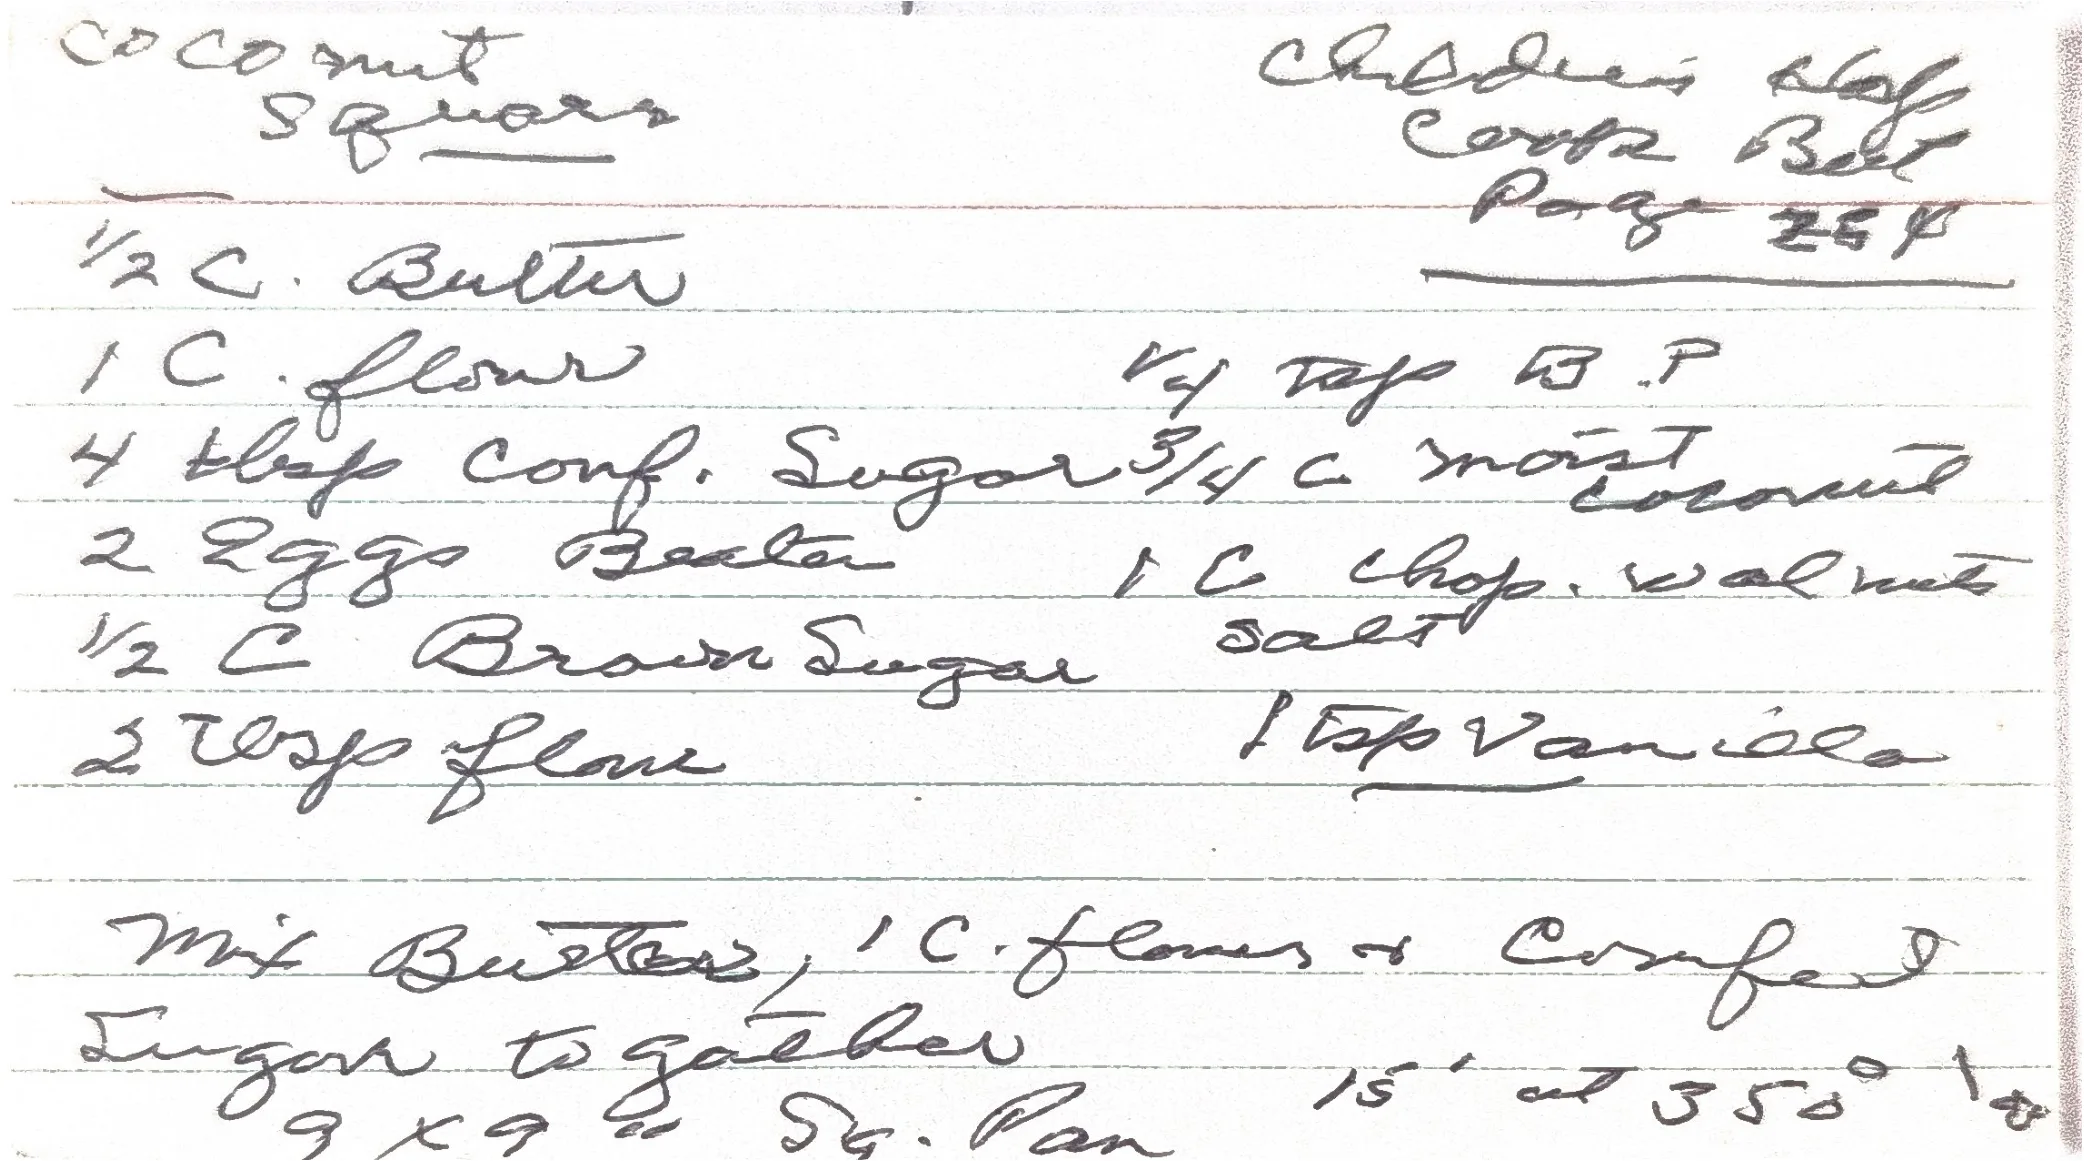 Coconut
Squares
Children's Hosp
Cook Book
Page 254
1/2 C. Butter
1 C. flour
4 tbsp conf. Sugar
2 Eggs Beaten
1/2 C Brown Sugar
2 Tbsp flour
1/4 Tsp B.P
3/4 C moist
coconut
1 C chop. walnuts
salt
1 Tsp Vanilla
Mix Butter, 1 C. flour +
Sugar together
9 x 9" Sq. Pan
15' at 350°